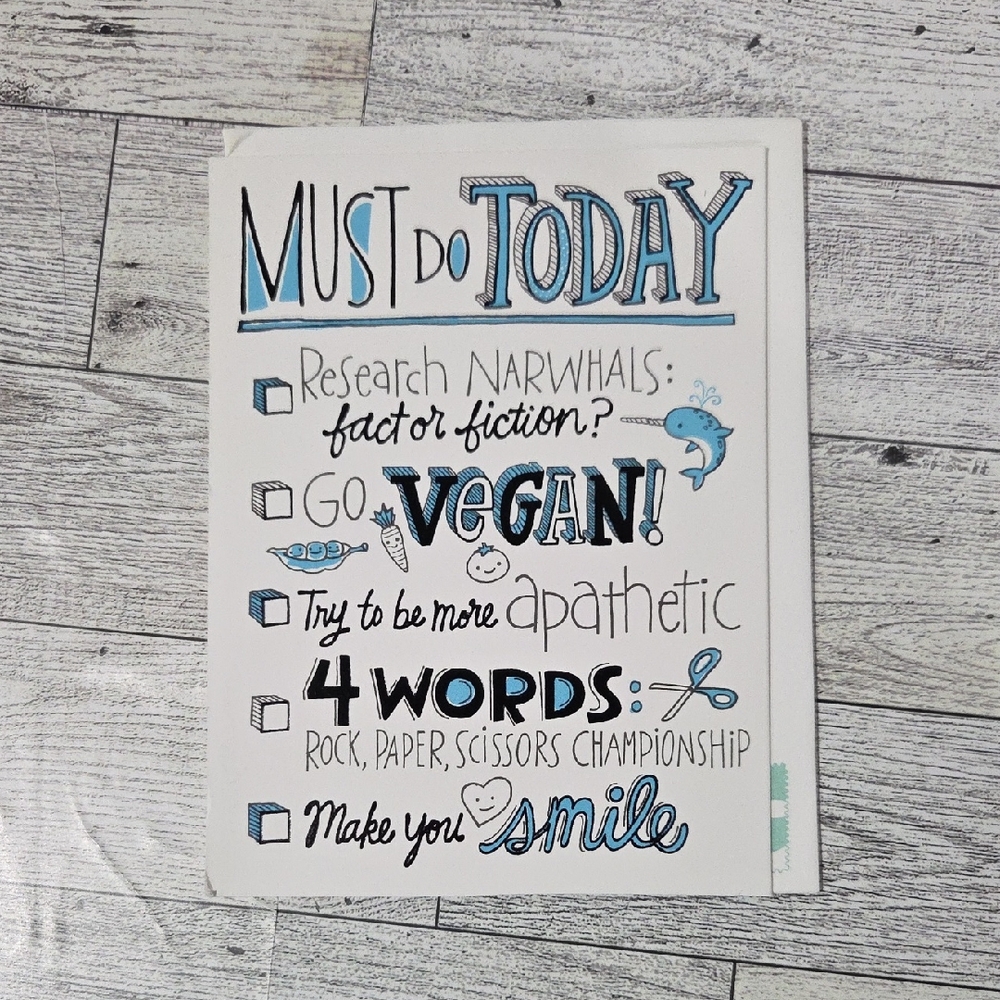 MUST DO TODAY
Research NARWHALS:
fact or fiction?
GO VEGAN!
Try to be more apathetic
4 WORDS:
ROCK, PAPER, SCISSORS CHAMPIONSHIP
Make you smile